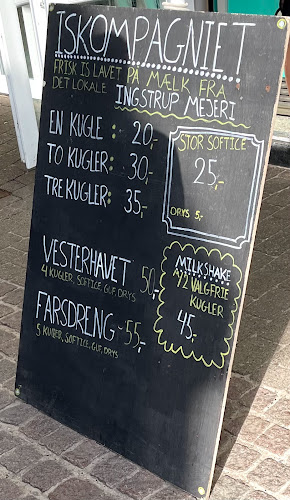 ISKOMPAGNIET
FRISK IS LAVET PÅ MÆLK FRA
DET LOKALE INGSTRUP MEJERI
EN KUGLE : 20,-
TO KUGLER: 30,-
TRE KUGLER: 35,-
STOR SOFTICE
25,-
DRYS 5,-
VESTERHAVET 50,-
4 KUGLER, SOFTICE, GUF, DRYS
FARSDRENG 55,-
5 KUGLER, SOFTICE, GUF, DRYS
MILKSHAKE
VALGFRIE
KUGLER
45,-